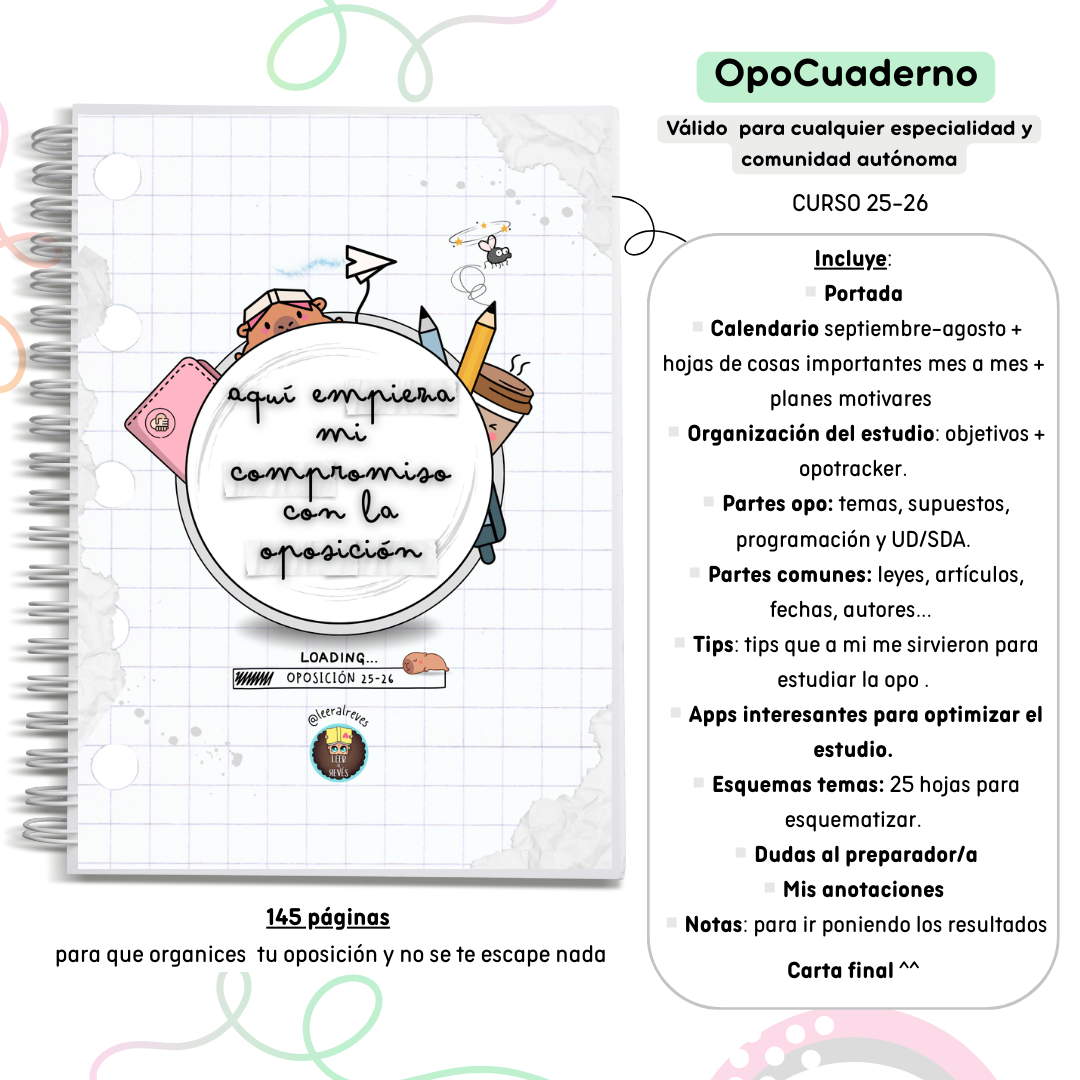 OpoCuaderno
Válido para cualquier especialidad y
comunidad autónoma
CURSO 25-26
aquí empieza
mi
compromiso
con la
oposición
LOADING...
OPOSICIÓN 25-26
@leeralreves
LEER
AL
REVÉS
145 páginas
para que organices tu oposición y no se te escape nada
Incluye:
Portada
Calendario septiembre-agosto +
hojas de cosas importantes mes a mes +
planes motivares
Organización del estudio: objetivos +
opotracker.
Partes opo: temas, supuestos,
programación y UD/SDA.
Partes comunes: leyes, artículos,
fechas, autores...
Tips: tips que a mi me sirvieron para
estudiar la opo .
Apps interesantes para optimizar el
estudio.
Esquemas temas: 25 hojas para
esquematizar.
Dudas al preparador/a
Mis anotaciones
Notas: para ir poniendo los resultados
Carta final ^^